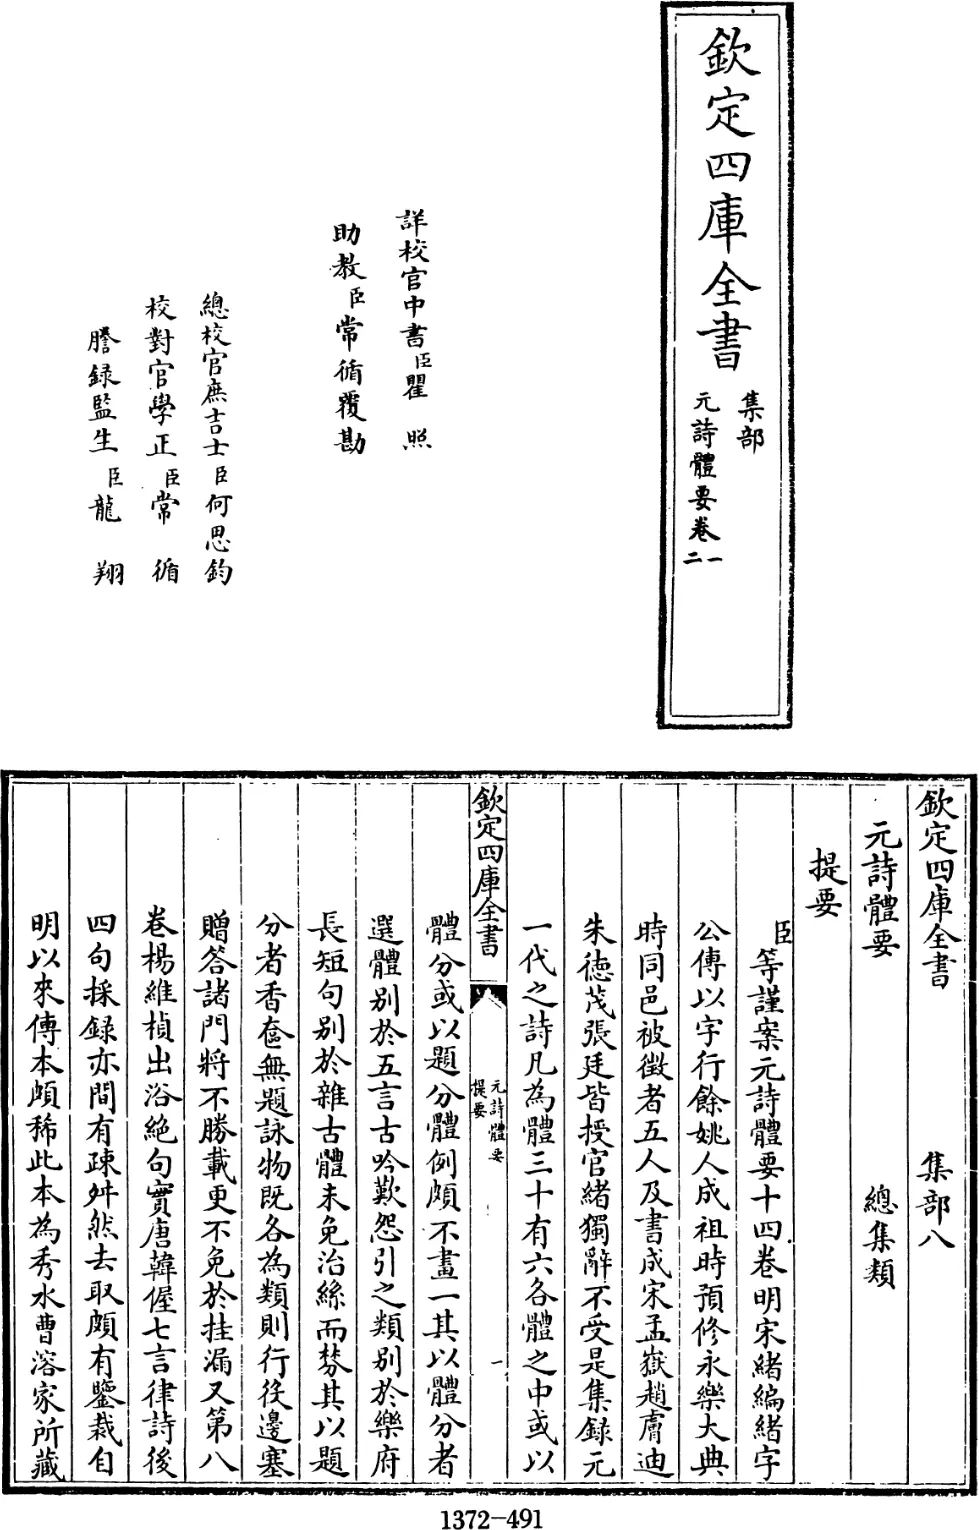 欽定四庫全書
集部
元詩體要卷一
二
詳校官中書臣瞿照
助教臣常循覆勘
總校官庶吉士臣何思鈞
校對官學正臣常循
謄録監生臣龍翔
欽定四庫全書 集部八
元詩體要 總集類
提要
臣等謹案元詩體要十四卷明宋緒編緒字
公傳以字行餘姚人成祖時預修永樂大典
時同邑被徵者五人及書成宋孟嶽趙膚迪
朱徳茂張廷皆授官緒獨辭不受是集録元
一代之詩凡為體三十有六各體之中或以
欽定四庫全書
元詩體要
提要
一
體分或以題分體例頗不畫一其以體分者
選體别於五言古吟歎怨引之類别於樂府
長短句别於雜古體未免治絲而棼其以題
分者香奩無題詠物既各為類則行役邊塞
贈答諸門將不勝載更不免於挂漏又第八
卷楊維楨出浴絶句實唐韓偓七言律詩後
四句採録亦間有疎舛然去取頗有鑒裁自
明以來傳本頗稀此本為秀水曹溶家所藏
1372-491